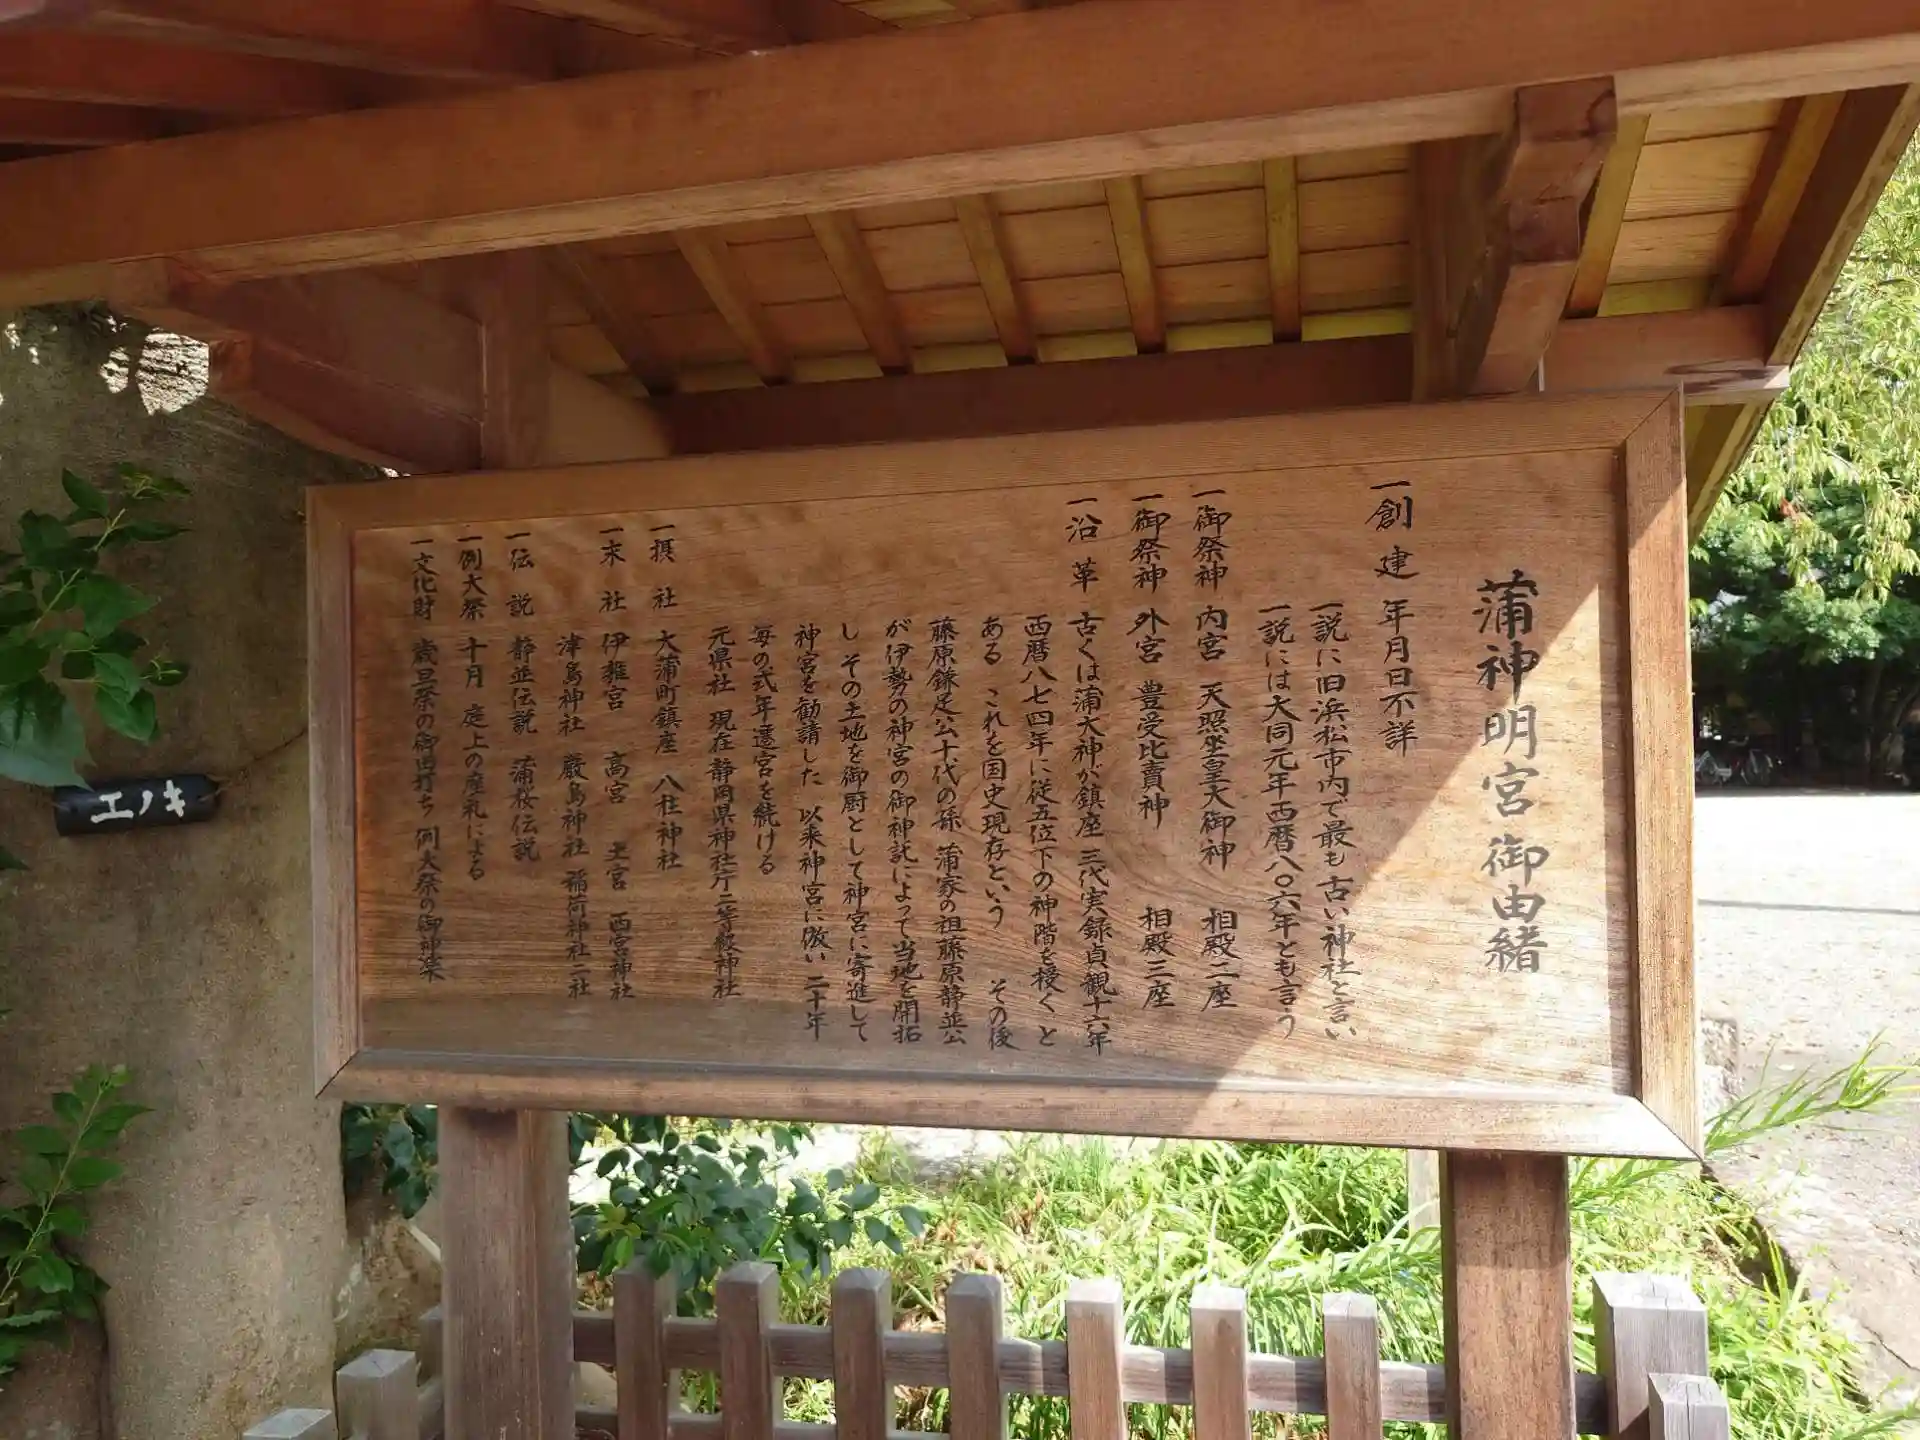 蒲神明宮 御由緒
一創建 年月日不詳
一説に旧浜松市内で最も古い神社と言い
一説には大同元年西暦八〇六年とも言う
一御祭神 内宮 天照坐皇大御神 相殿二座
一御祭神 外宮 豊受比賣神 相殿三座
一沿革 古くは蒲大神が鎮座 三代実録貞観十六年
西暦八七四年に従五位下の神階を授くと
ある これを国史現存という その後
藤原鎌足公十代の孫 蒲家の祖藤原静並公
が伊勢の神宮の御神託によって当地を開拓
し その土地を御厨として神宮に寄進して
神宮を勧請した 以来神宮に倣い 二十年
毎の式年遷宮を続ける
元県社 現在静岡県神社庁二等級神社
一摂社 大蒲町鎮座 八柱神社
一末社 伊雜宮 高宮 土宮 西宮神社
津島神社 厳島神社 稲荷神社二社
一伝説 静並伝説 蒲桜伝説
一例大祭 十月 庭上の座礼による
一文化財 歳旦祭の御田打ち 例大祭の御神楽
エノキ